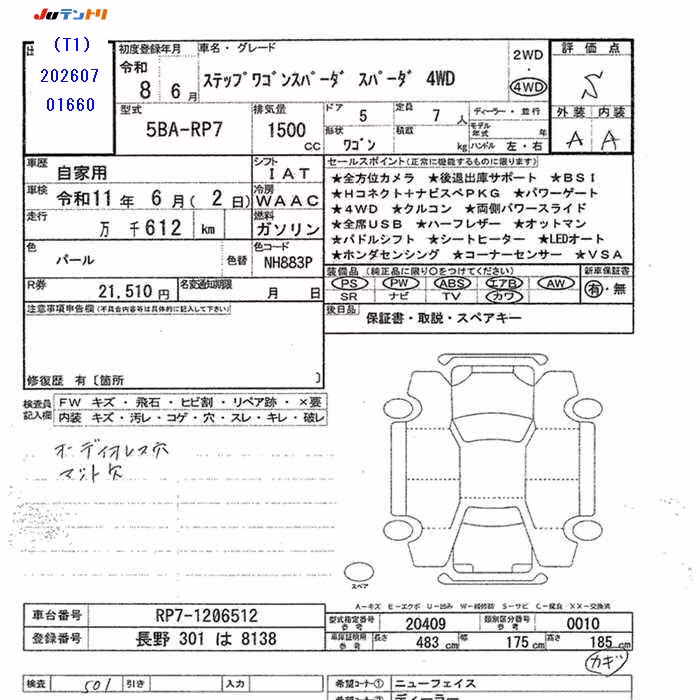 JUテントリ
仕 (T1) 初度登録年月 車名・グレード 2WD 評価点
202607 令和 8 6月 ステップワゴンスパーダ スパーダ 4WD 4WD S
01660 型式 排気量 ドア 5 定員 7人 ディーラー・並行 外装 内装
5BA-RP7 1500cc 形状 ワゴン 積載 kg モデル年式 年 ハンドル 左・右 A A
車歴 自家用 シフト IAT セールスポイント(正常に機能するものに限ります)
車検 令和11年 6月(2日) 冷房 WAAC ★全方位カメラ ★後退出庫サポート ★BSI
走行 万 千612 km 燃料 ガソリン ★Hコネクト+ナビスペPKG ★パワーゲート
★4WD ★クルコン ★両側パワースライド
★全席USB ★ハーフレザー ★オットマン
色 パール 色替 色コード NH883P ★パドルシフト ★シートヒーター ★LEDオート
★ホンダセンシング ★コーナーセンサー ★VSA
R券 21,510円 名変通知期限 月 日 装備品(純正品に限り○をつけてください) 新車保証書
PS PW ABS エアB AW 有・無
SR ナビ TV カワ
注意事項申告欄(不具合内容等は具体的に記入して下さい) 後日品 保証書・取説・スペアキー
修復歴 有〔箇所 〕
検査員記入欄 FW キズ・飛石・ヒビ割・リペア跡・×要
内装 キズ・汚レ・コゲ・穴・スレ・キレ・破レ
オーディオレス穴
マット欠
スペア
A－キズ E－エクボ U－凹み W－補修跡 S－サビ C－腐食 XX－交換済
車台番号 RP7-1206512 型式指定番号 参考 20409 類別区分番号 参考 0010
登録番号 長野 301 は 8138 車庫証明用 参考 長さ 483cm 幅 175cm 高さ 185cm
カギ
検査 501 引き 入力 希望コーナー① ニューフェイス
希望コーナー② ディーラー